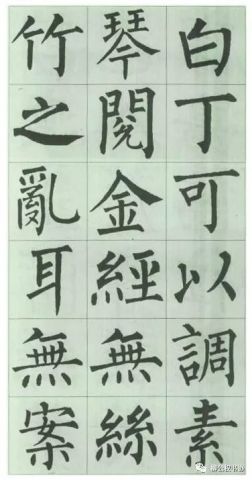 白丁可以調素
琴閱金經無絲
竹之亂耳無案